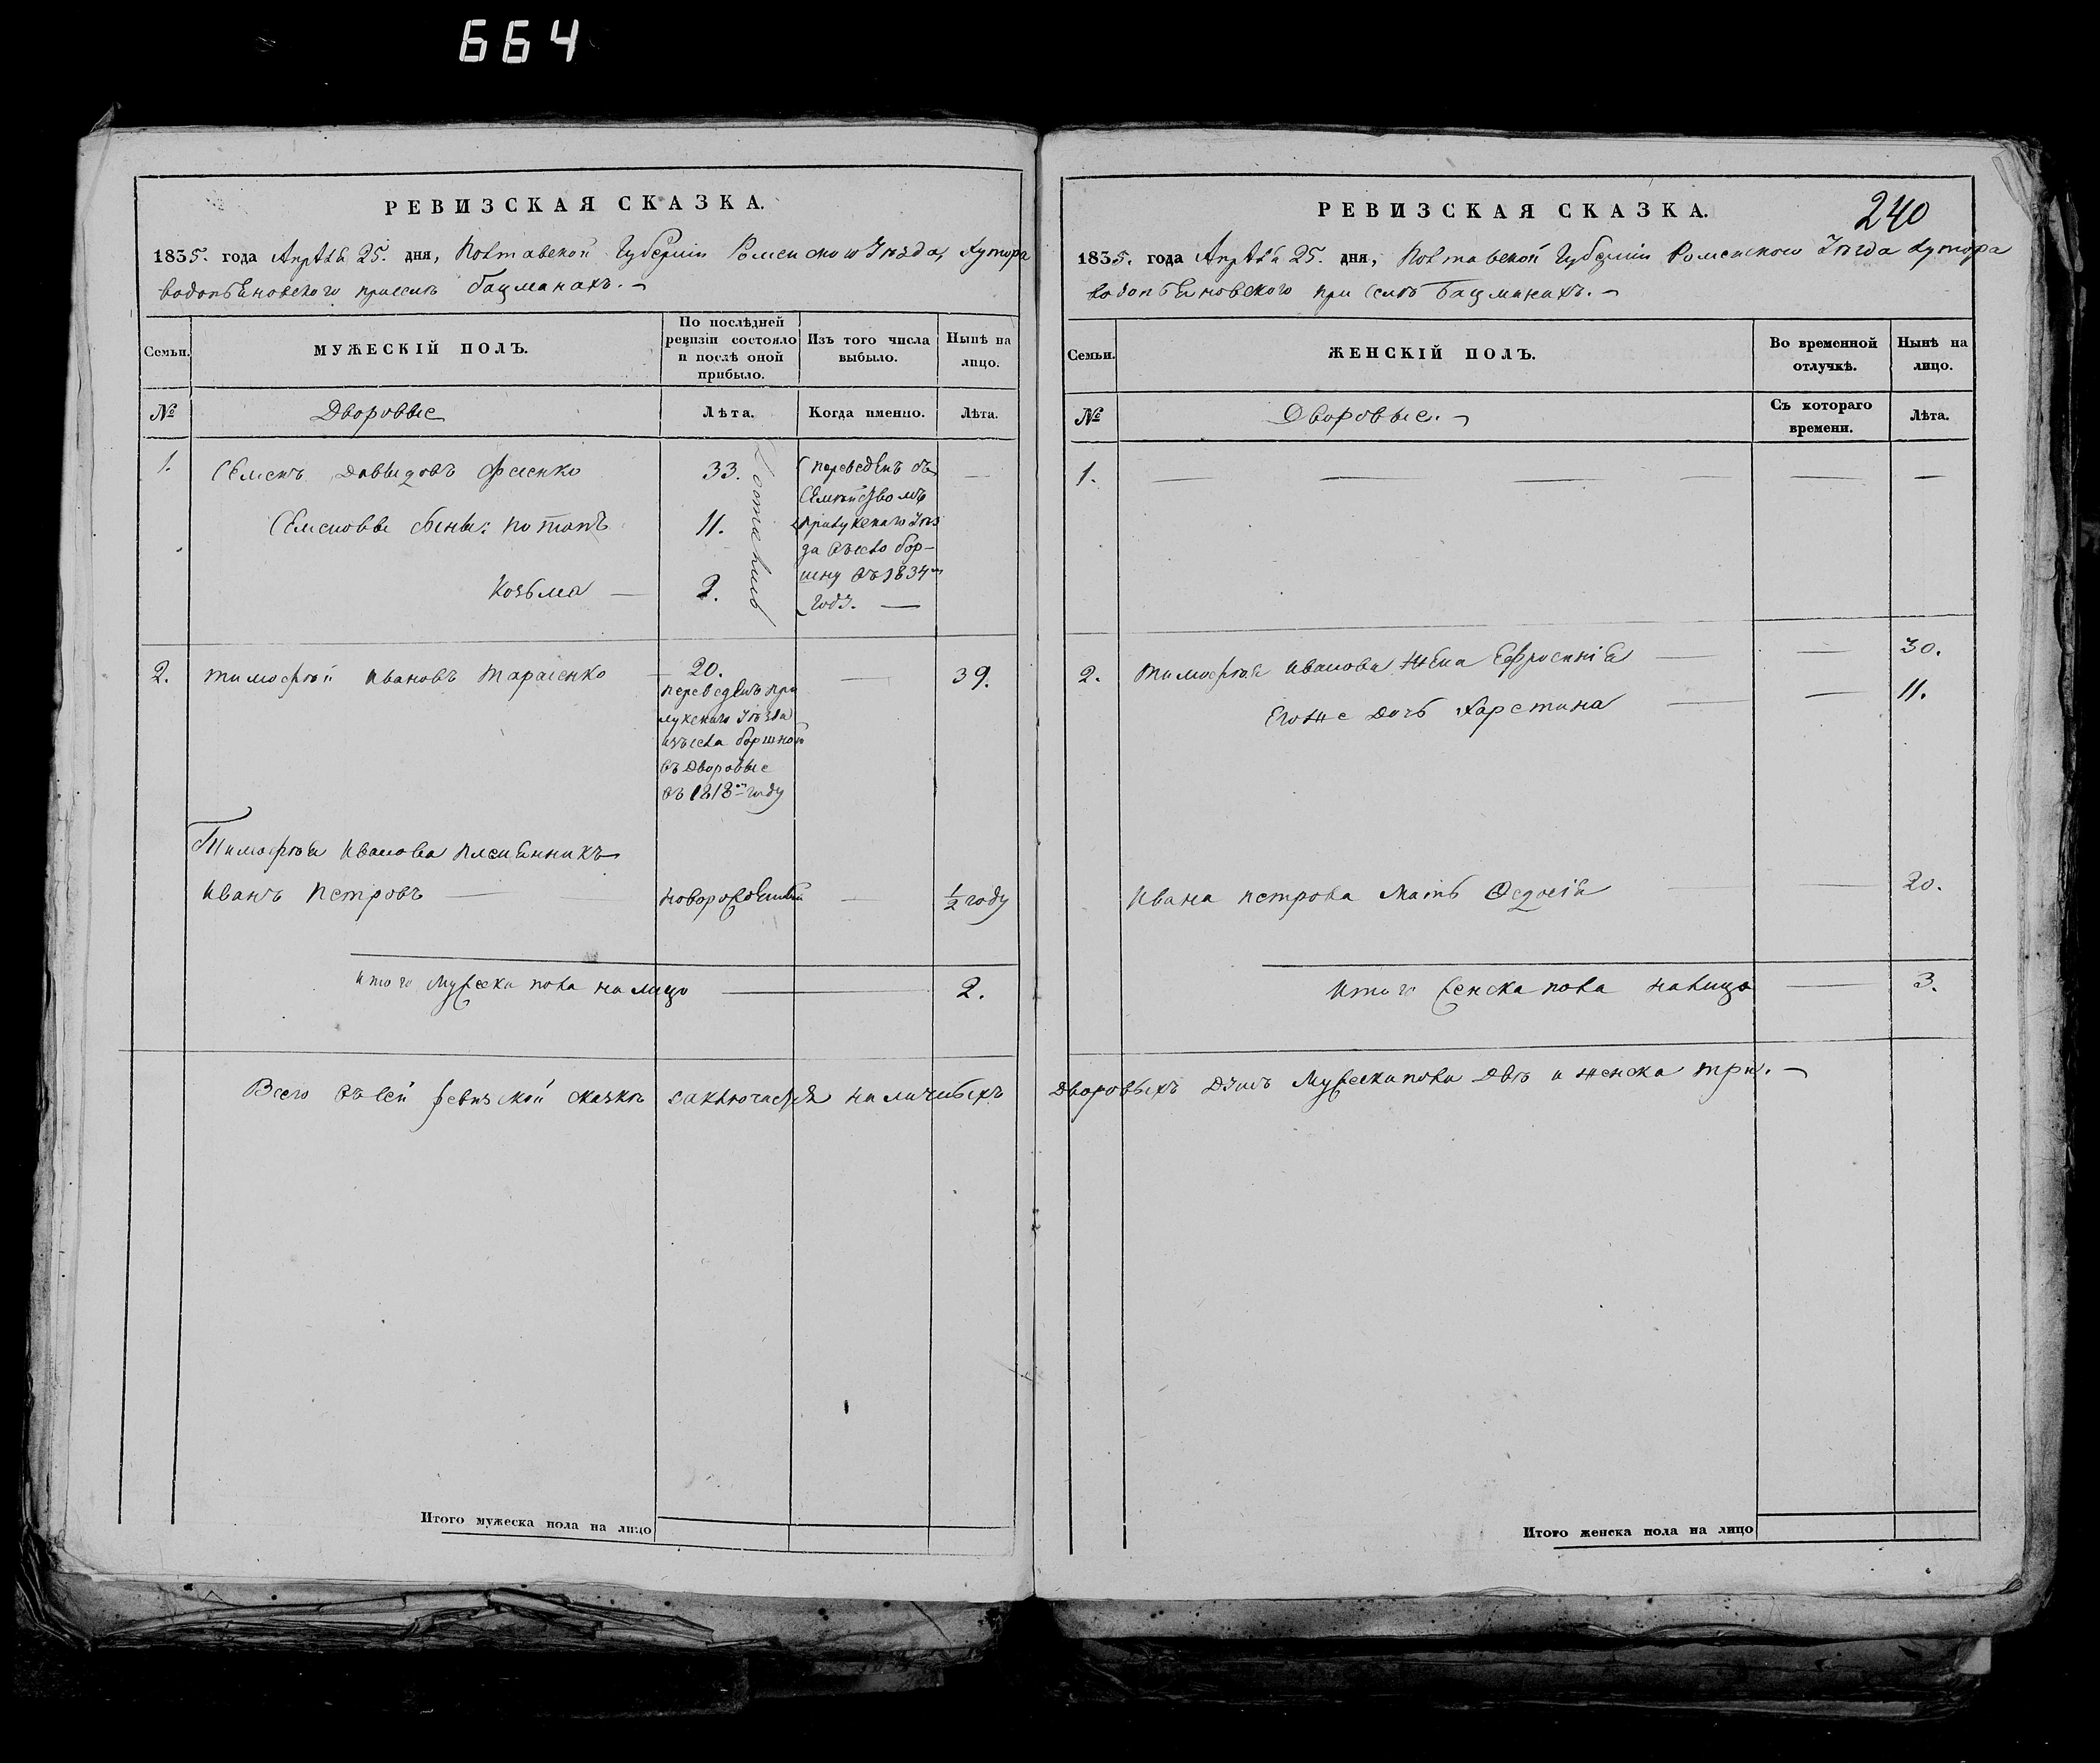 664
РЕВИЗСКАЯ СКАЗКА.
1835. года Апрѣля 25. дня, Полтавской Губерніи Роменского Уѣзда, Хутора
водопьяновского приселѣ Бацманахъ.
Семьи.
МУЖЕСКІЙ ПОЛЪ.
По послѣдней
ревизіи состояло
и послѣ оной
прибыло.
Изъ того числа
выбыло.
Нынѣ на
лицо.
№
Дворовые
Лѣта.
Когда именно.
Лѣта.
1.
Семенъ Давыдовъ Фесенко
33.
переведенъ съ
—
Семейством
Семеновы сыны: потапъ
11.
прилукскаго Уѣз
да въсело бор-
Козьма —
2.
шну въ 1834м
годȣ. —
2.
тимофѣй Ивановъ тарасенко
20.
—
39.
переведенъ при
лукскаго Уѣзда
изъсела боршной
въ Дворовые
въ 1818м году
Тимофѣя Иванова племянникъ
Иванъ Петровъ —
новорожденный
—
½ году
итого мужеска пола на лицо
2.
Всего въсей ревизской сказкѣ заключается наличныхъ
Итого мужеска пола на лицо
РЕВИЗСКАЯ СКАЗКА.
240
1835. года Апрѣля 25. дня, Полтавской Губерніи Роменского Уѣзда Хутора
водопьяновского при селѣ Бацманахъ.
Семьи.
ЖЕНСКІЙ ПОЛЪ.
Во временной
отлучкѣ.
Нынѣ на
лицо.
№
Дворовые.
Съ котораго
времени.
Лѣта.
1. — — — — — —
2.
тимофѣя иванова жена Ефросинія — — 30.
Егоже дочь Харстина — — 11.
Ивана петрова мать Федосія — — 20.
Итого женска пола налицо — 3.
Дворовыхъ дȣшъ мужескапола двѣ и женска три. —
Итого женска пола на лицо